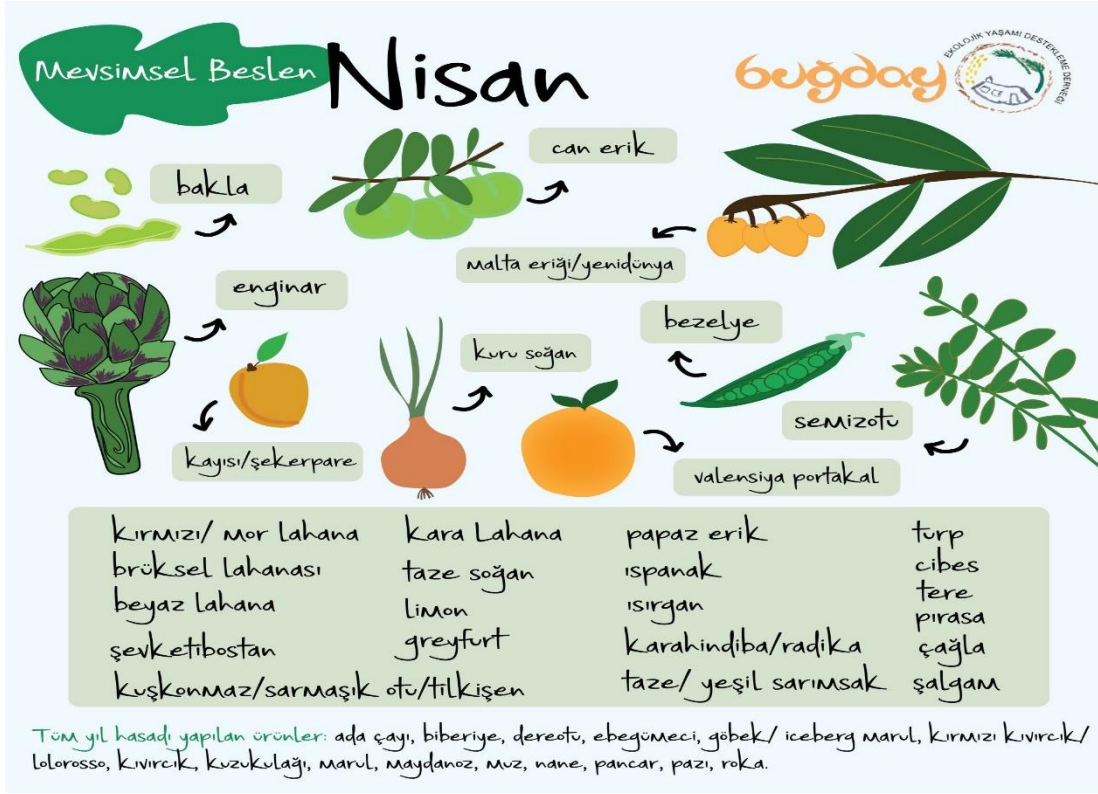 Mevsimsel Beslen
Nisan
buğday
EKOLOJİK YAŞAMI DESTEKLEME DERNEĞİ
bakla
can erik
malta eriği/yenidünya
enginar
bezelye
kuru soğan
semizotu
kayısı/şekerpare
valensiya portakal
kırmızı/ mor lahana
brüksel lahanası
beyaz lahana
şevketibostan
kuşkonmaz/sarmaşık otu/tilkişen
kara Lahana
taze soğan
limon
greyfurt
papaz erik
ıspanak
ısırgan
karahindiba/radika
taze/ yeşil sarımsak
turp
cibes
tere
pırasa
çağla
şalgam
Tüm yıl hasadı yapılan ürünler: ada çayı, biberiye, dereotu, ebegümeci, göbek/ iceberg marul, kırmızı kıvırcık/
lolorosso, kıvırcık, kuzukulağı, marul, maydanoz, muz, nane, pancar, pazı, roka.